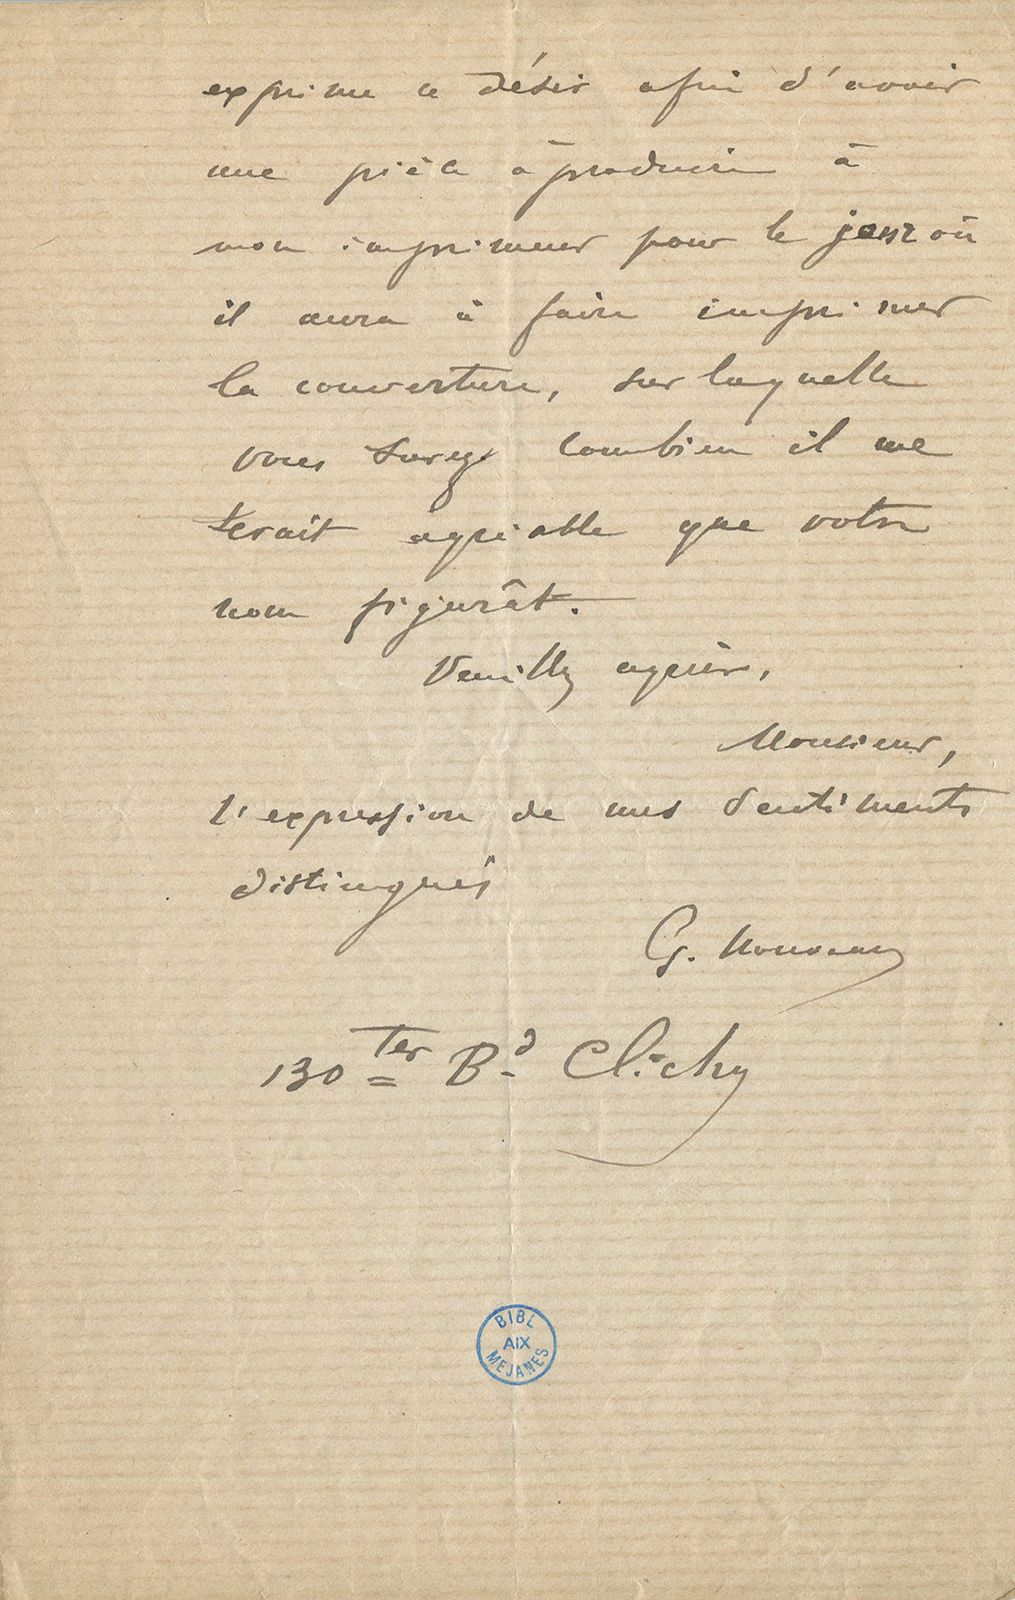 exprime ce désir afin d'avoir
une pièce à produire à
mon imprimeur pour le jour où
il aura à faire imprimer
la couverture, sur laquelle
vous savez combien il me
serait agréable que votre
nom figurât.
Veuillez agréer,
Monsieur,
l'expression de mes sentiments
distingués
G. Nouveau
130 Ter Bd Clichy
BIBL
AIX
MEJANES